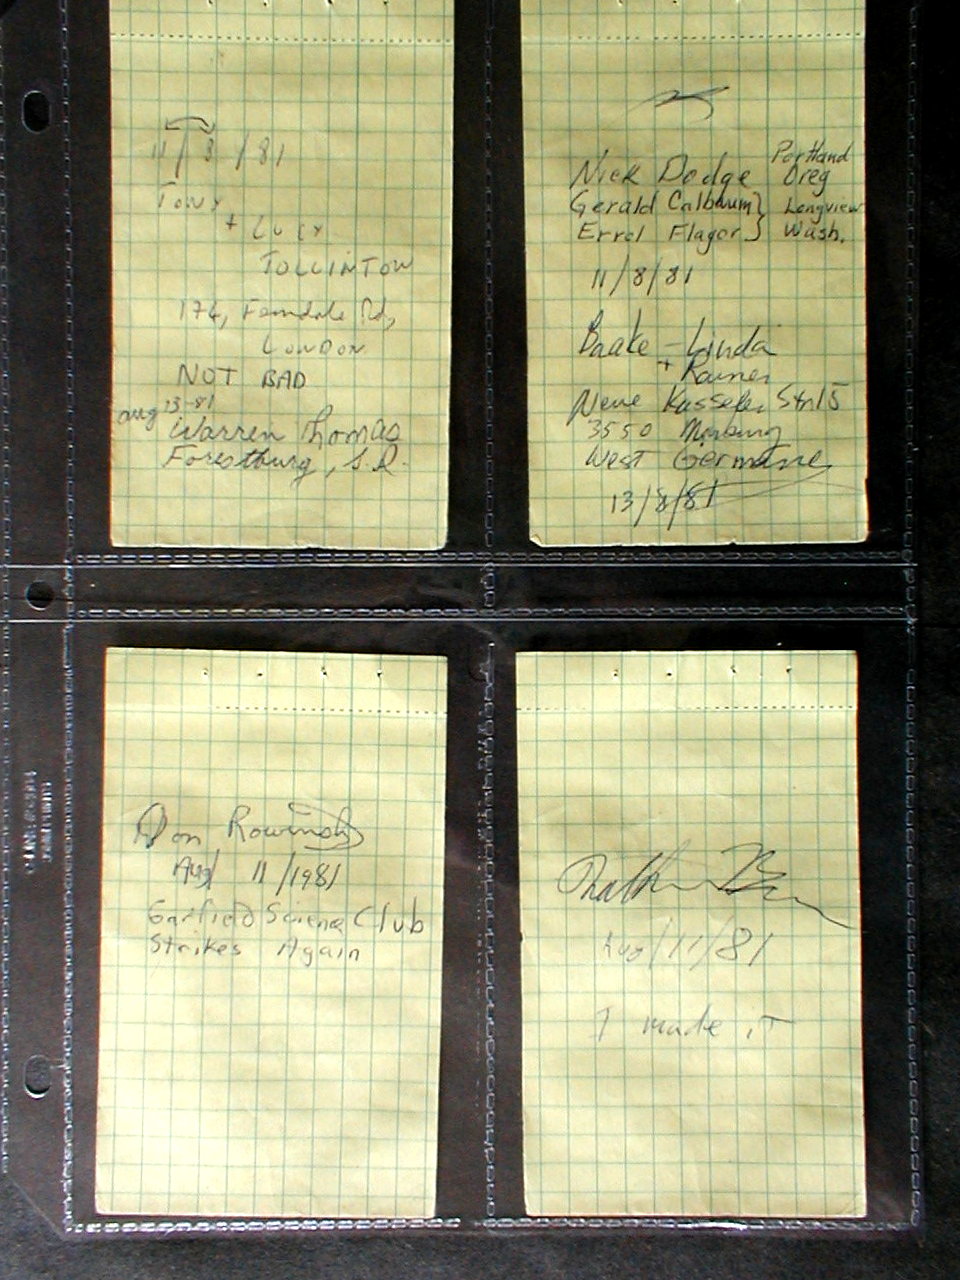 11/8/81
TONY
+ LUCY
TOLLINTON
174, Ferndale Rd,
LONDON
NOT BAD
Aug 13-81
Warren Thomas
Forestburg, S.D.
Nick Dodge Portland Oreg
Gerald Calbaum } Longview
Errol Flagor } Wash.
11/8/81
Baake - Linda
+ Rainer
Neue Kasseler Str 15
3550 Marburg
West Germany
13/8/81
Don Rowinsky
Aug 11/1981
Garfield Science Club
Strikes Again
Aug/11/81
I made it